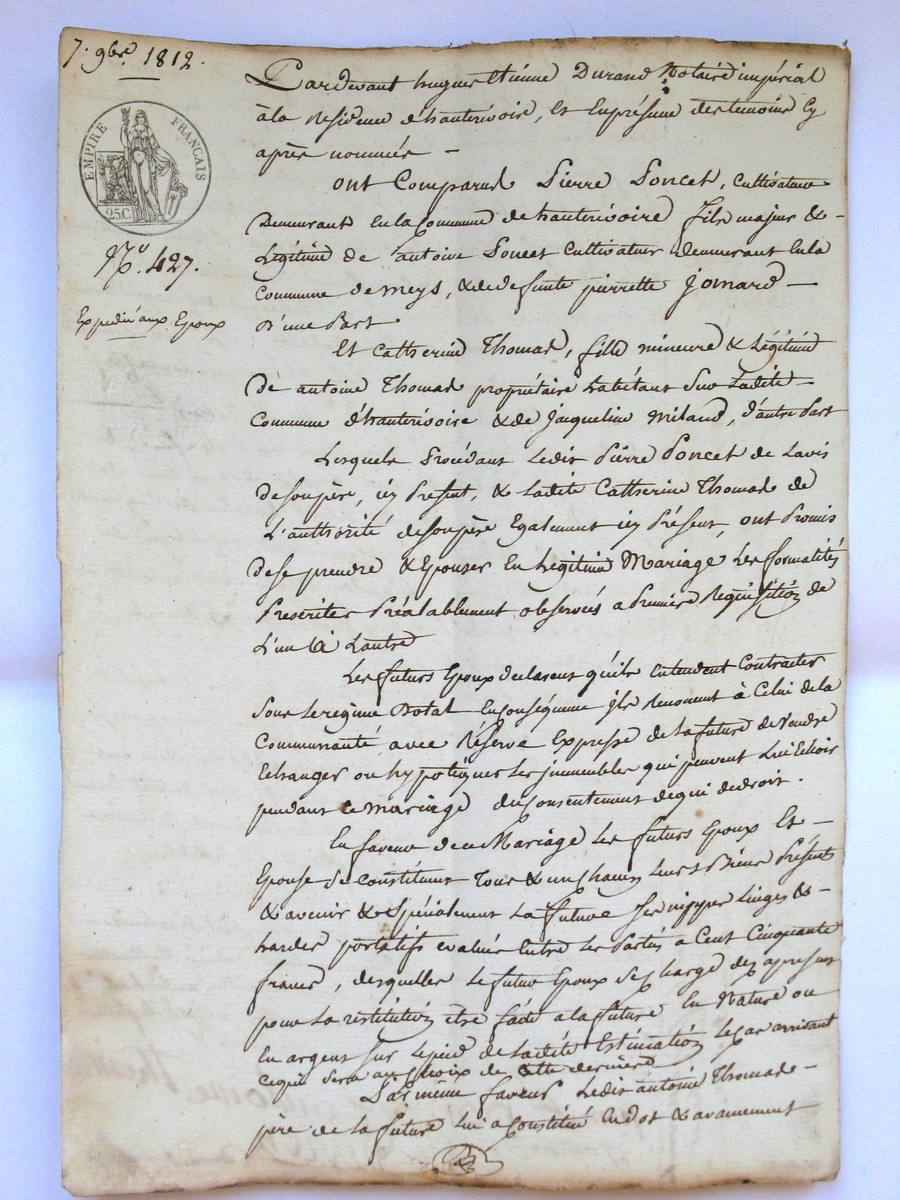 7. 9bre 1812.
EMPIRE FRANÇAIS
25C.
No. 427.
Expedié aux Epoux
Pardevant hugues Etienne Durand Notaire impérial
à la Residence d'hauterivoire, et en présence des temoins cy
après nommés –
ont Comparus Pierre Poncet, cultivateur
Demeurant en la Commune de hauterivoire fils majeur &
Légitime de antoine Poncet Cultivateur demeurant en la
Commune de meys, & de defunte pierrette Jomard –
d'une Part
Et Catherine Thomas, fille mineure & Légitime
de antoine Thomas propriétaire habitant sur Ladite
Commune d'hauterivoire & de Jacqueline Miland, d'autre Part
Lesquels Procédant Ledit Pierre Poncet de Lavis
de son père, icy Présent, & Ladite Catherine Thomas de
L'authorité de son père Egalement icy Présent, ont Promis
de se prendre & Epouser en Légitime Mariage Les formalités
Prescrites Préalablement observées a Premiere Requisition de
L'un à Lautre
Les futurs Epoux declarent qu'ils entendent Contracter
sous le regime Dotal en conséquence ils Renoncent à Celui de la
Communauté avec Réserve Expresse de La future de Vendre
Echanger ou hypotequer les immeubles qui peuvent Lui Echoir
pendant ce mariage du Consentement de qui de droit.
En faveur de ce Mariage Les futurs Epoux Et –
Epouse se constituent Tous & un chacun leurs Biens Présents
& avenir & Spécialement La future ses nippes Linges &
hardes portatifs evalués Entre Les Parties a Cent Cinquante
francs, desquelles Le futur Epoux se charge dez apresent
pour La restitution etre faite a la future en Nature ou
En argent sur le pied de Ladite Estimation le cas arrivant
ce qui sera au choix de cette derniere
Par meme faveur Ledit antoine Thomas –
père de La future Lui a Constitué en dot & avancement